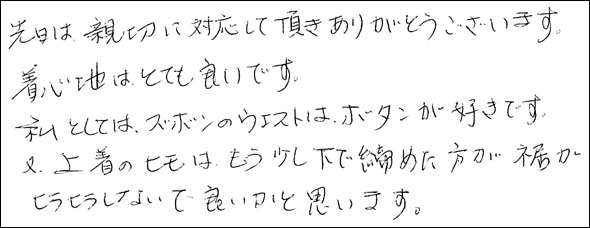 先日は、親切に対応して頂きありがとうございます。
着心地はとても良いです。
私としては、ズボンのウエストは、ボタンが好きです。
又、上着のヒモは、もう少し下で締めた方が裾が
ヒラヒラしないで良いかと思います。